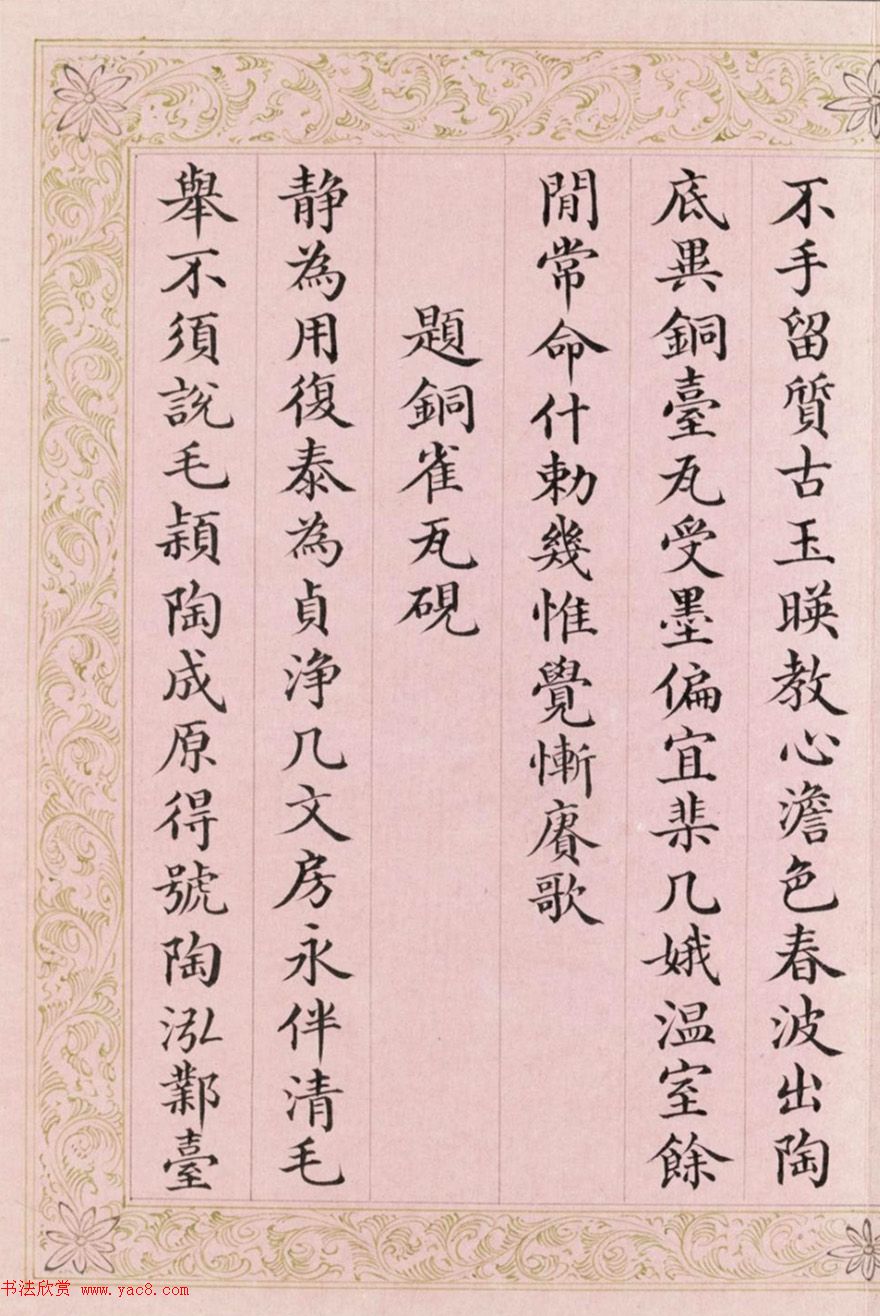 不手留質古玉暎教心澹色春波出陶
底異銅臺瓦受墨偏宜棐几娥温室餘
閒常命什勅幾惟覺慚賡歌
題銅雀瓦硯
静為用復泰為貞浄几文房永伴清毛
舉不須説毛穎陶成原得號陶泓鄴臺
书法欣赏 www.yac8.com